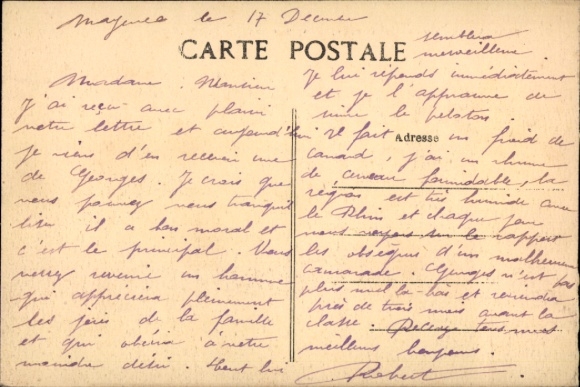 Mayence le 17 Décembre
CARTE POSTALE
Madame, Monsieur
J'ai reçu avec plaisir
votre lettre et aujourd'hui
je viens d'en recevoir une
de Georges. Je crois que
vous pouvez vous tranquil
liser il a bon moral et
c'est le principal. Vous
verrez revenir un homme
qui appréciera pleinement
les joies de la famille
et qui obéira à votre
moindre désir. Tout lui
semblera
merveilleux.
Je lui réponds immédiatement
et je l'approuve de
suivre le peloton.
Il fait un froid de
Adresse
canard, j'ai un rhume
de cerveau formidable, la
région est très humide avec
le Rhin et chaque jour
nous voyons sur le rapport
les obsèques d'un malheureux
camarade. Georges n'est pas
plus mal là bas et reviendra
près de trois mois avant la
classe. Recevez tous mes
meilleurs baisers.
Robert